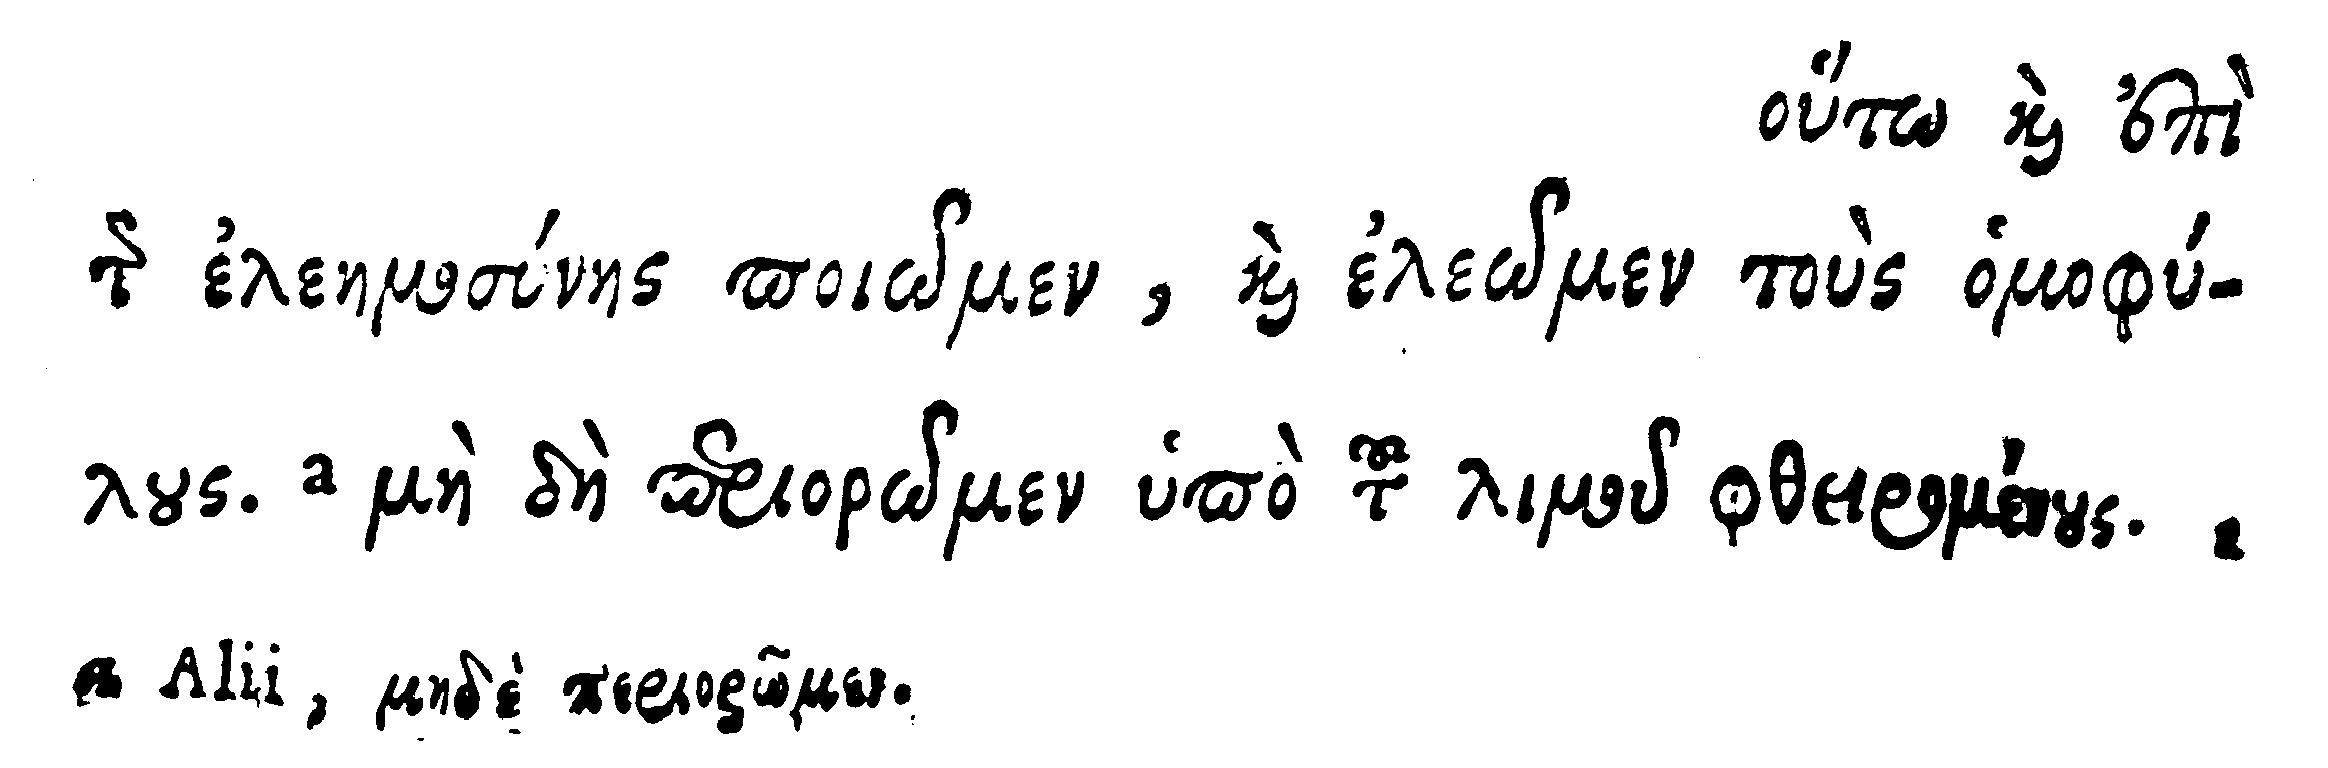 οὕτω καὶ ἐπὶ
τῆς ἐλεημοσύνης ποιῶμεν, καὶ ἐλεῶμεν τοὺς ὁμοφύ-
λους. a μὴ δὴ περιορῶμεν ὑπὸ τοῦ λιμοῦ φθειρομένους.
a Alii, μηδὲ περιορῶμεν.